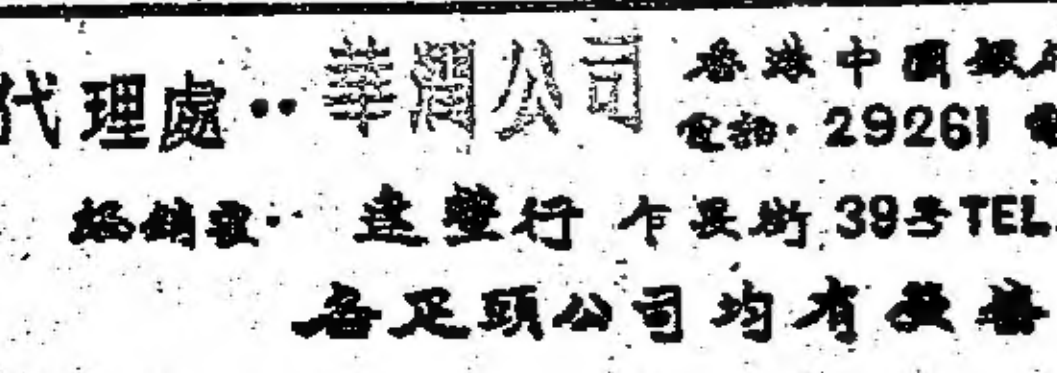 代理處：華潤公司
香港中國銀
電話：29261
總銷處：達豐行 乍畏街39号TEL
各疋頭公司均有發售